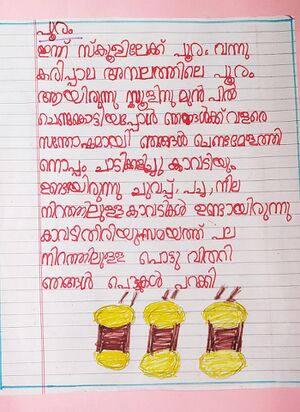 പൂരം
ഇന്ന് സ്കൂളിലേക്ക് പൂരം വന്നു
കരിപ്പാല അമ്പലത്തിലെ പൂരം
ആയിരുന്നു സ്കൂളിനു മുൻപിൽ
ചെണ്ടകൊട്ടിയപ്പോൾ ഞങ്ങൾക്ക് വളരെ
സന്തോഷമായി ഞങ്ങൾ ചെണ്ടമേളത്തി
നൊപ്പം ചാടികളിച്ചു കാവടിയും
ഉണ്ടായിരുന്നു ചുവപ്പ്, പച്ച, നീല
നിറത്തിലുള്ള കാവടികൾ ഉണ്ടായിരുന്നു
കാവടിതിരിയുംസമയത്ത് പല
നിറത്തിലുള്ള പൊട്ടു വിതറി
ഞങ്ങൾ പൊട്ടുകൾ പറക്കി